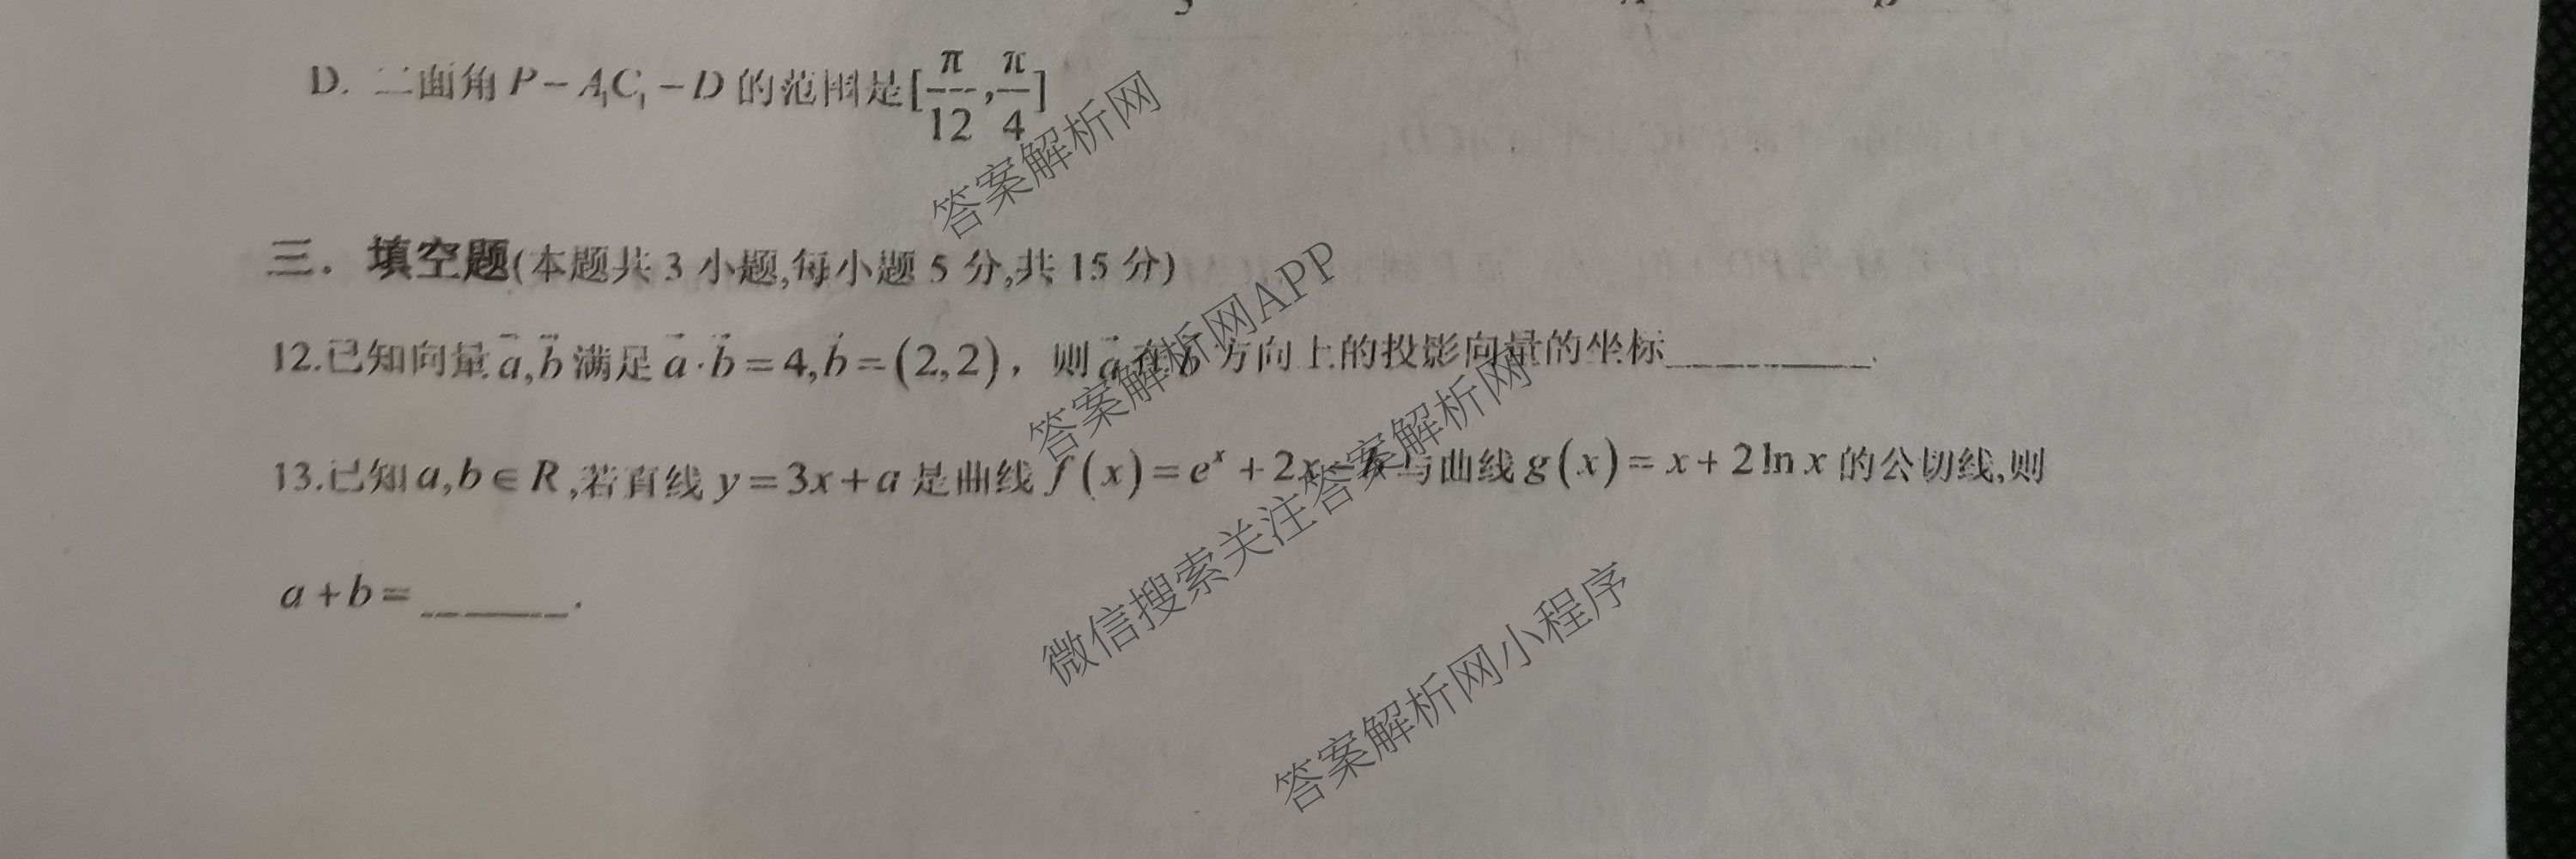 D. 二面角 P-A₁C₁-D 的范围是[π/12,π/4]
答案解析网
三．填空题(本题共 3 小题,每小题 5 分,共 15 分)
答案解析网APP
12.已知向量 a⃗,b⃗ 满足 a⃗·b⃗=4,b⃗=(2,2)，则 a⃗ 在 b⃗ 方向上的投影向量的坐标________.
13.已知 a,b∈R,若直线 y=3x+a 是曲线 f(x)=eˣ+2x-b 与曲线 g(x)=x+2ln x 的公切线,则
a+b=______.
微信搜索关注答案解析网
答案解析网小程序